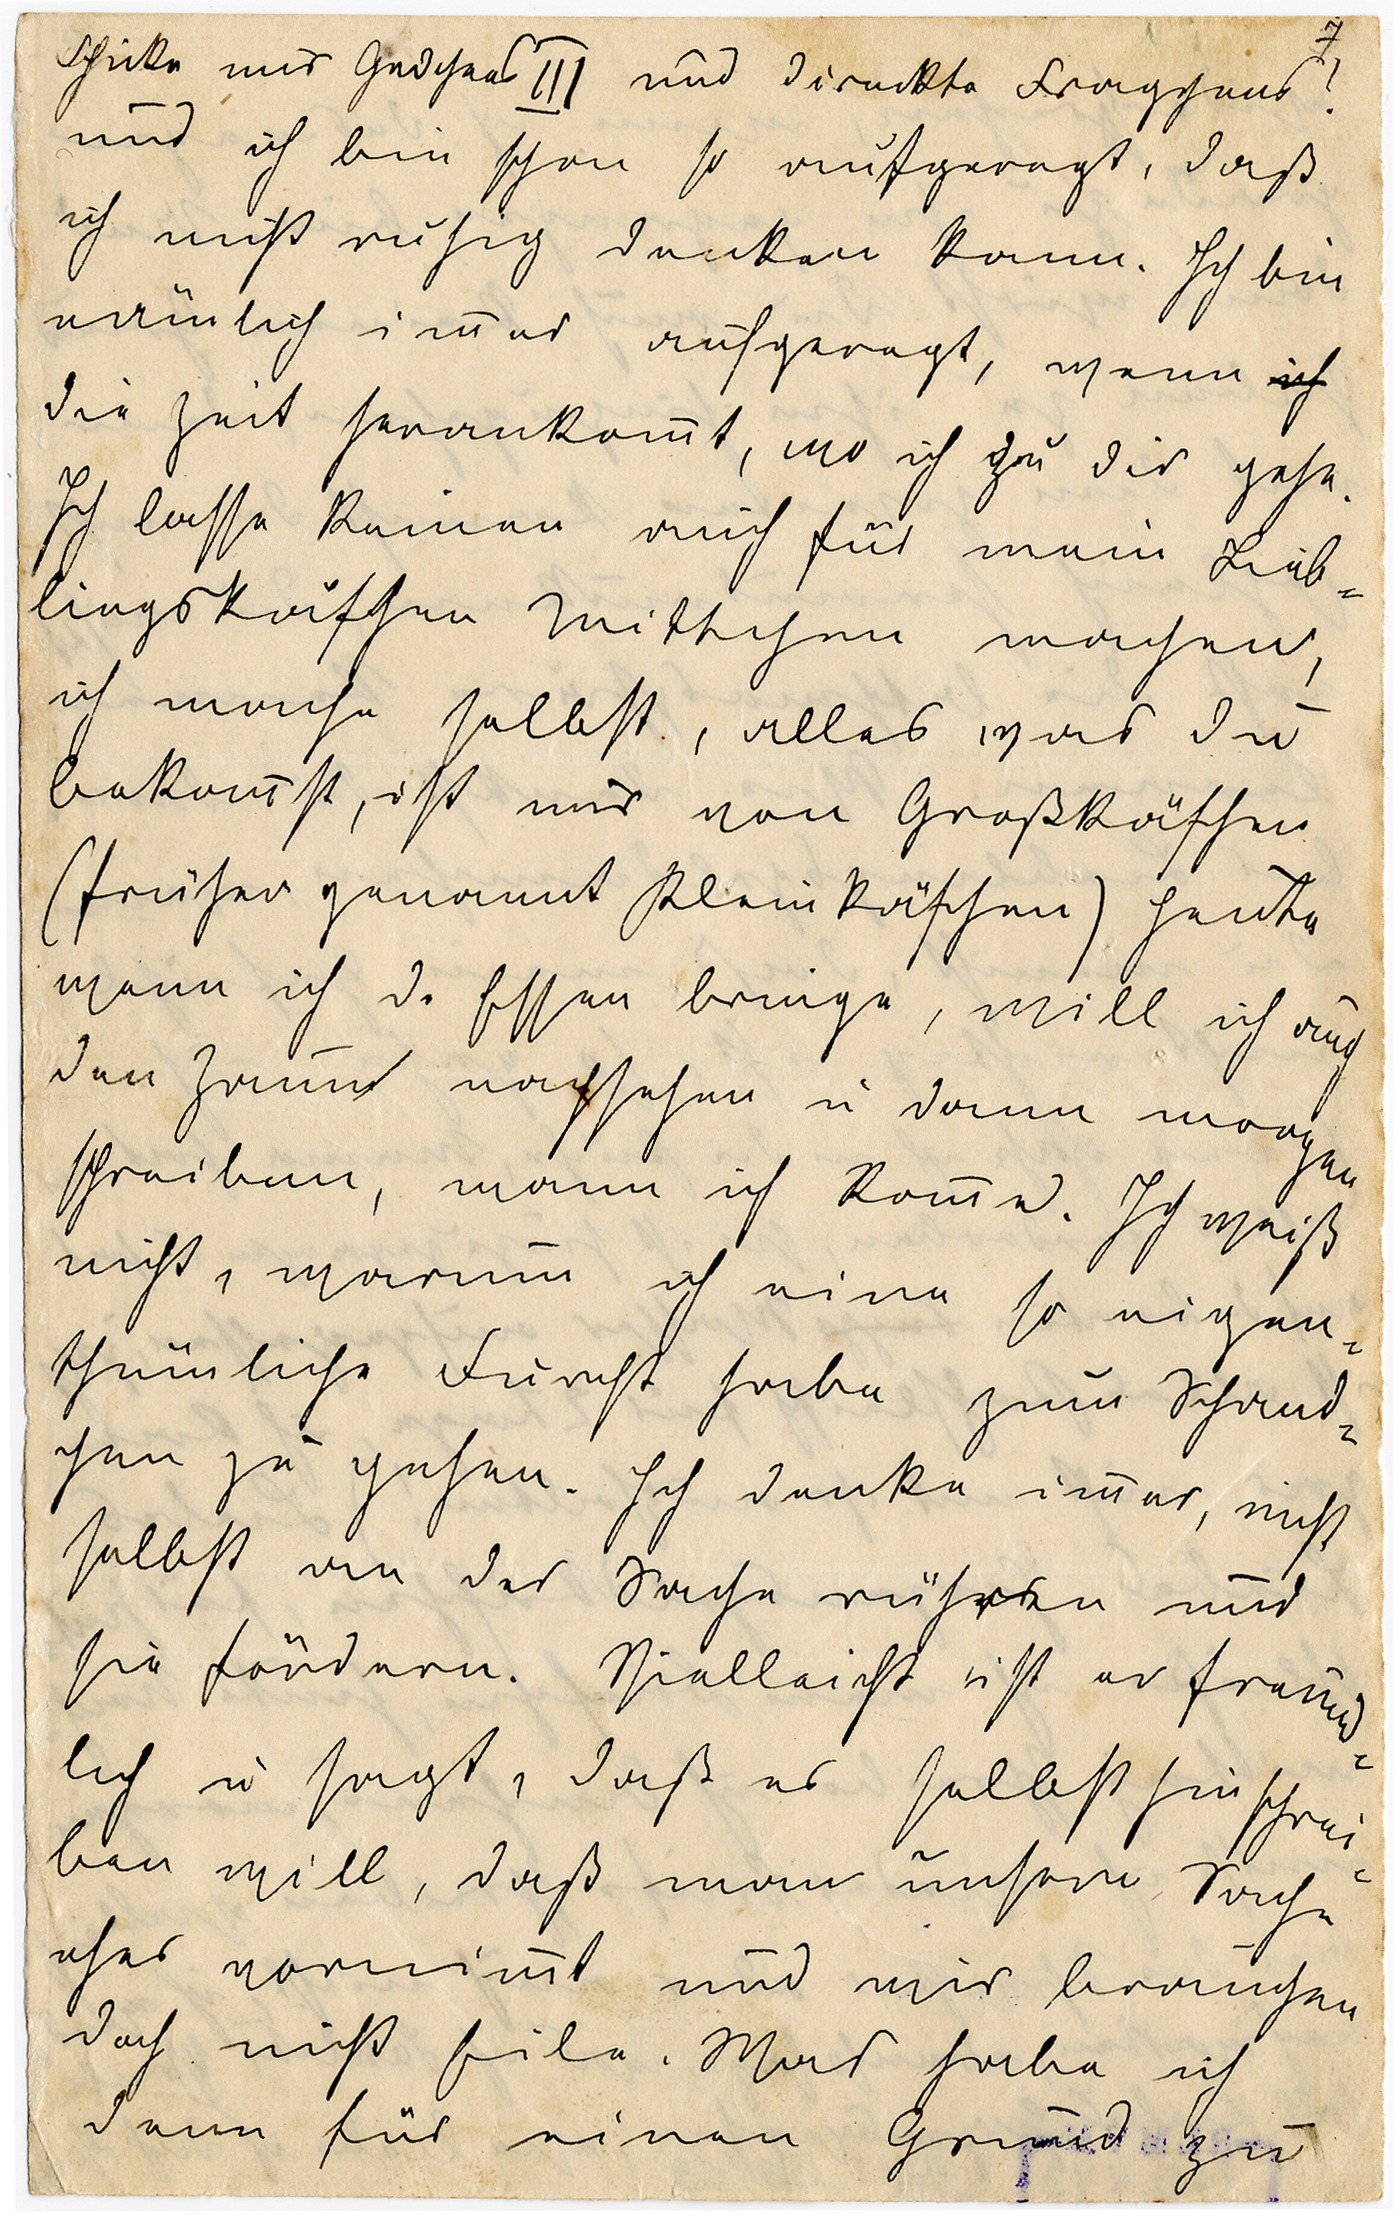 7
Schicke mir Gedchens III und direckte Fragchens!
und ich bin schon so aufgeregt, daß
ich nicht ruhig denken kann. Ich bin
nämlich im̅er aufgeregt, wenn ich
die Zeit herankom̅t, wo ich zu dir gehe.
Ich lasse keinen auch für mein Lieb=
lingskäfchen Mittchen machen,
ich mache selbst, alles was du
bekom̅st, ist nur von Großkäfchen
(früher genannt Kleinkäfchen) heute
wenn ich d. Essen bringe, will ich auch
den Zaun nachsehen u dann morgen
schreiben, wann ich kom̅e. Ich weiß
nicht, warum ich eine so eigen=
thümliche Furcht habe zum Schand=
chen zu gehen. Ich denke im̅er, nicht
selbst an der Sache rühren und
sie fördern. Vielleicht ist er freund=
lich u sagt, daß er selbst hinschrei=
ben will, daß man unsere Sache
eher vornim̅t und wir brauchen
doch nicht Eile. Was habe ich
denn für einen Grund zu